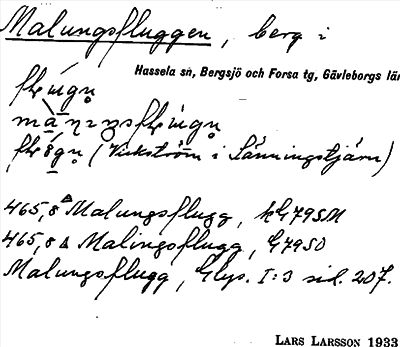 Malungsfluggen, berg i
Hassela sn, Bergsjö och Forsa tg, Gävleborgs län
(Vickström i Länningstjärn)
465,8 ∆ Malungsflugg, kG79SM
465,8 ∆ Malingsflugg, G79SO
Malungsflugg, Glys. I:3 sid. 207.
LARS LARSSON 1933